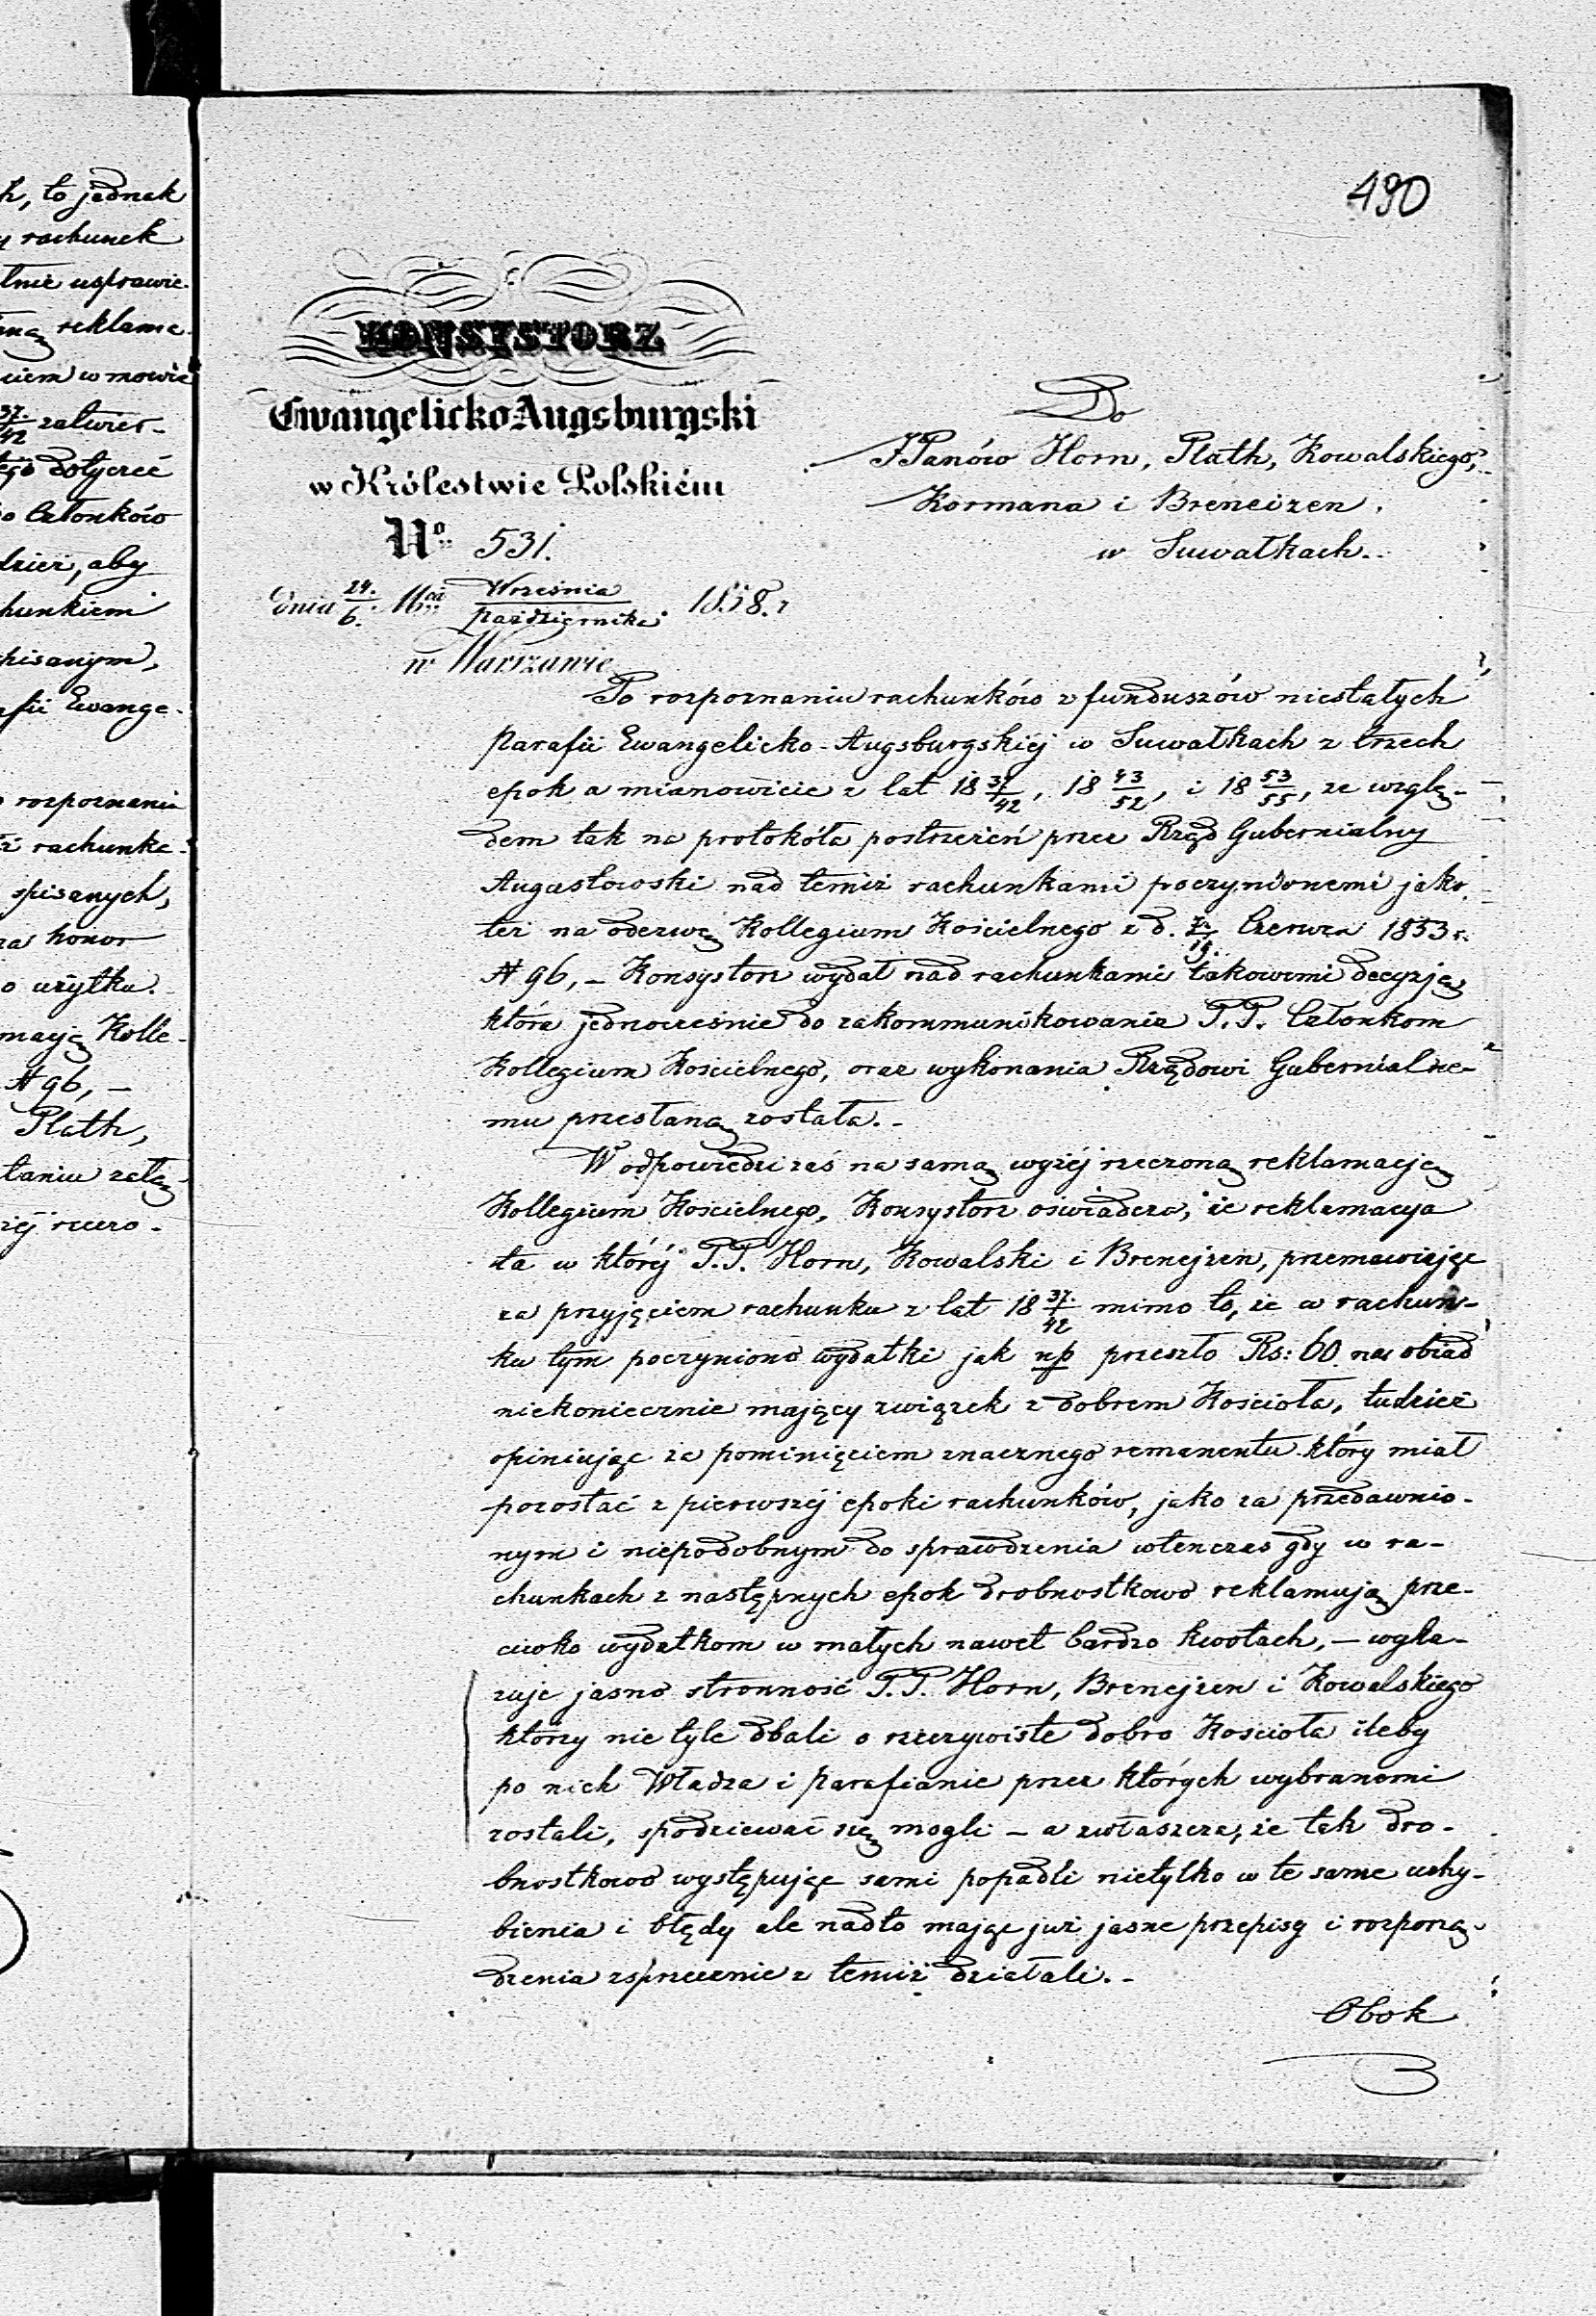 h, to jednak
y rachunek
łnie usprawie-
aną reklama-
ciem w mowie
37/42 zatwier-
tego dotyczé
o Członków
dzież, aby
hunkiem
pisanym,
afii Ewange-
o rozpoznania
ż rachunka-
spisanych,
za honor
o użytku.
macją Kolle-
№ 96, –
Plath,
łaniu załą-
żéj rzeczo-
490
KONSYSTORZ
Ewangelicko Augsburgski
w Królestwie Polskiém
No. 531.
dnia 24./6. Mca Września/Października 1858. r
w Warszawie
Do
JPanów Horn, Plath, Kowalskiego,
Kormana i Breneizen.
w Suwałkach.
Po rozpoznaniu rachunków z funduszów niestałych
Parafii Ewangelicko-Augsburgskiéj w Suwałkach z trzech
epok a mianowicie z lat 18 37/42, 18 43/52, i 18 53/55, ze wzglę-
dem tak na protokóła postrzeżeń przez Rząd Gubernialny
Augustowski nad temiż rachunkami poczynionemi jako
też na odezwę Kollegium Kościelnego z d. Czerwca 1853 r.
№ 96, – Konsystorz wydał nad rachunkami takowemi decyzją
która jednocześnie do zakommunikowania P.P. Członkom
Kollegium Kościelnego, oraz wykonania Rządowi Gubernialne-
mu przesłaną została. –
W odpowiedzi zaś na samą wyżéj rzeczoną reklamacją
Kollegium Kościelnego, Konsystorz oświadcza, że reklamacya
ta w któréj P.P. Horn, Kowalski i Brenejzen, przemawiając
za przyjęciem rachunku z lat 18 37./42 mimo to, że w rachun-
ku tym poczyniono wydatki jak np przeszło Rs: 60 na obiad
niekoniecznie mający związek z dobrem Kościoła, tudzież
opiniując za pominięciem znacznego remanentu który miał
pozostać z pierwszéj epoki rachunków, jako za przedawnio-
nym i niepodobnym do sprawdzenia wtenczas gdy w ra-
chunkach z następnych epok drobnostkowo reklamują prze-
ciwko wydatkom w małych nawet bardzo kwotach, – wyka-
zuje jasno stronność P.P. Horn, Brenejzen i Kowalskiego
którzy nie tyle dbali o rzeczywiste dobro Kościoła ileby
po nich Władza i Parafianie przez których wybranemi
zostali, spodziewać się mogli – a zwłaszcza, że tak dro-
bnostkowo występując sami popadli nietylko w te same uchy-
bienia i błędy ale nadto mając już jasne przepisy i rozporzą-
dzenia sprzecznie z temiż działali. –
Obok